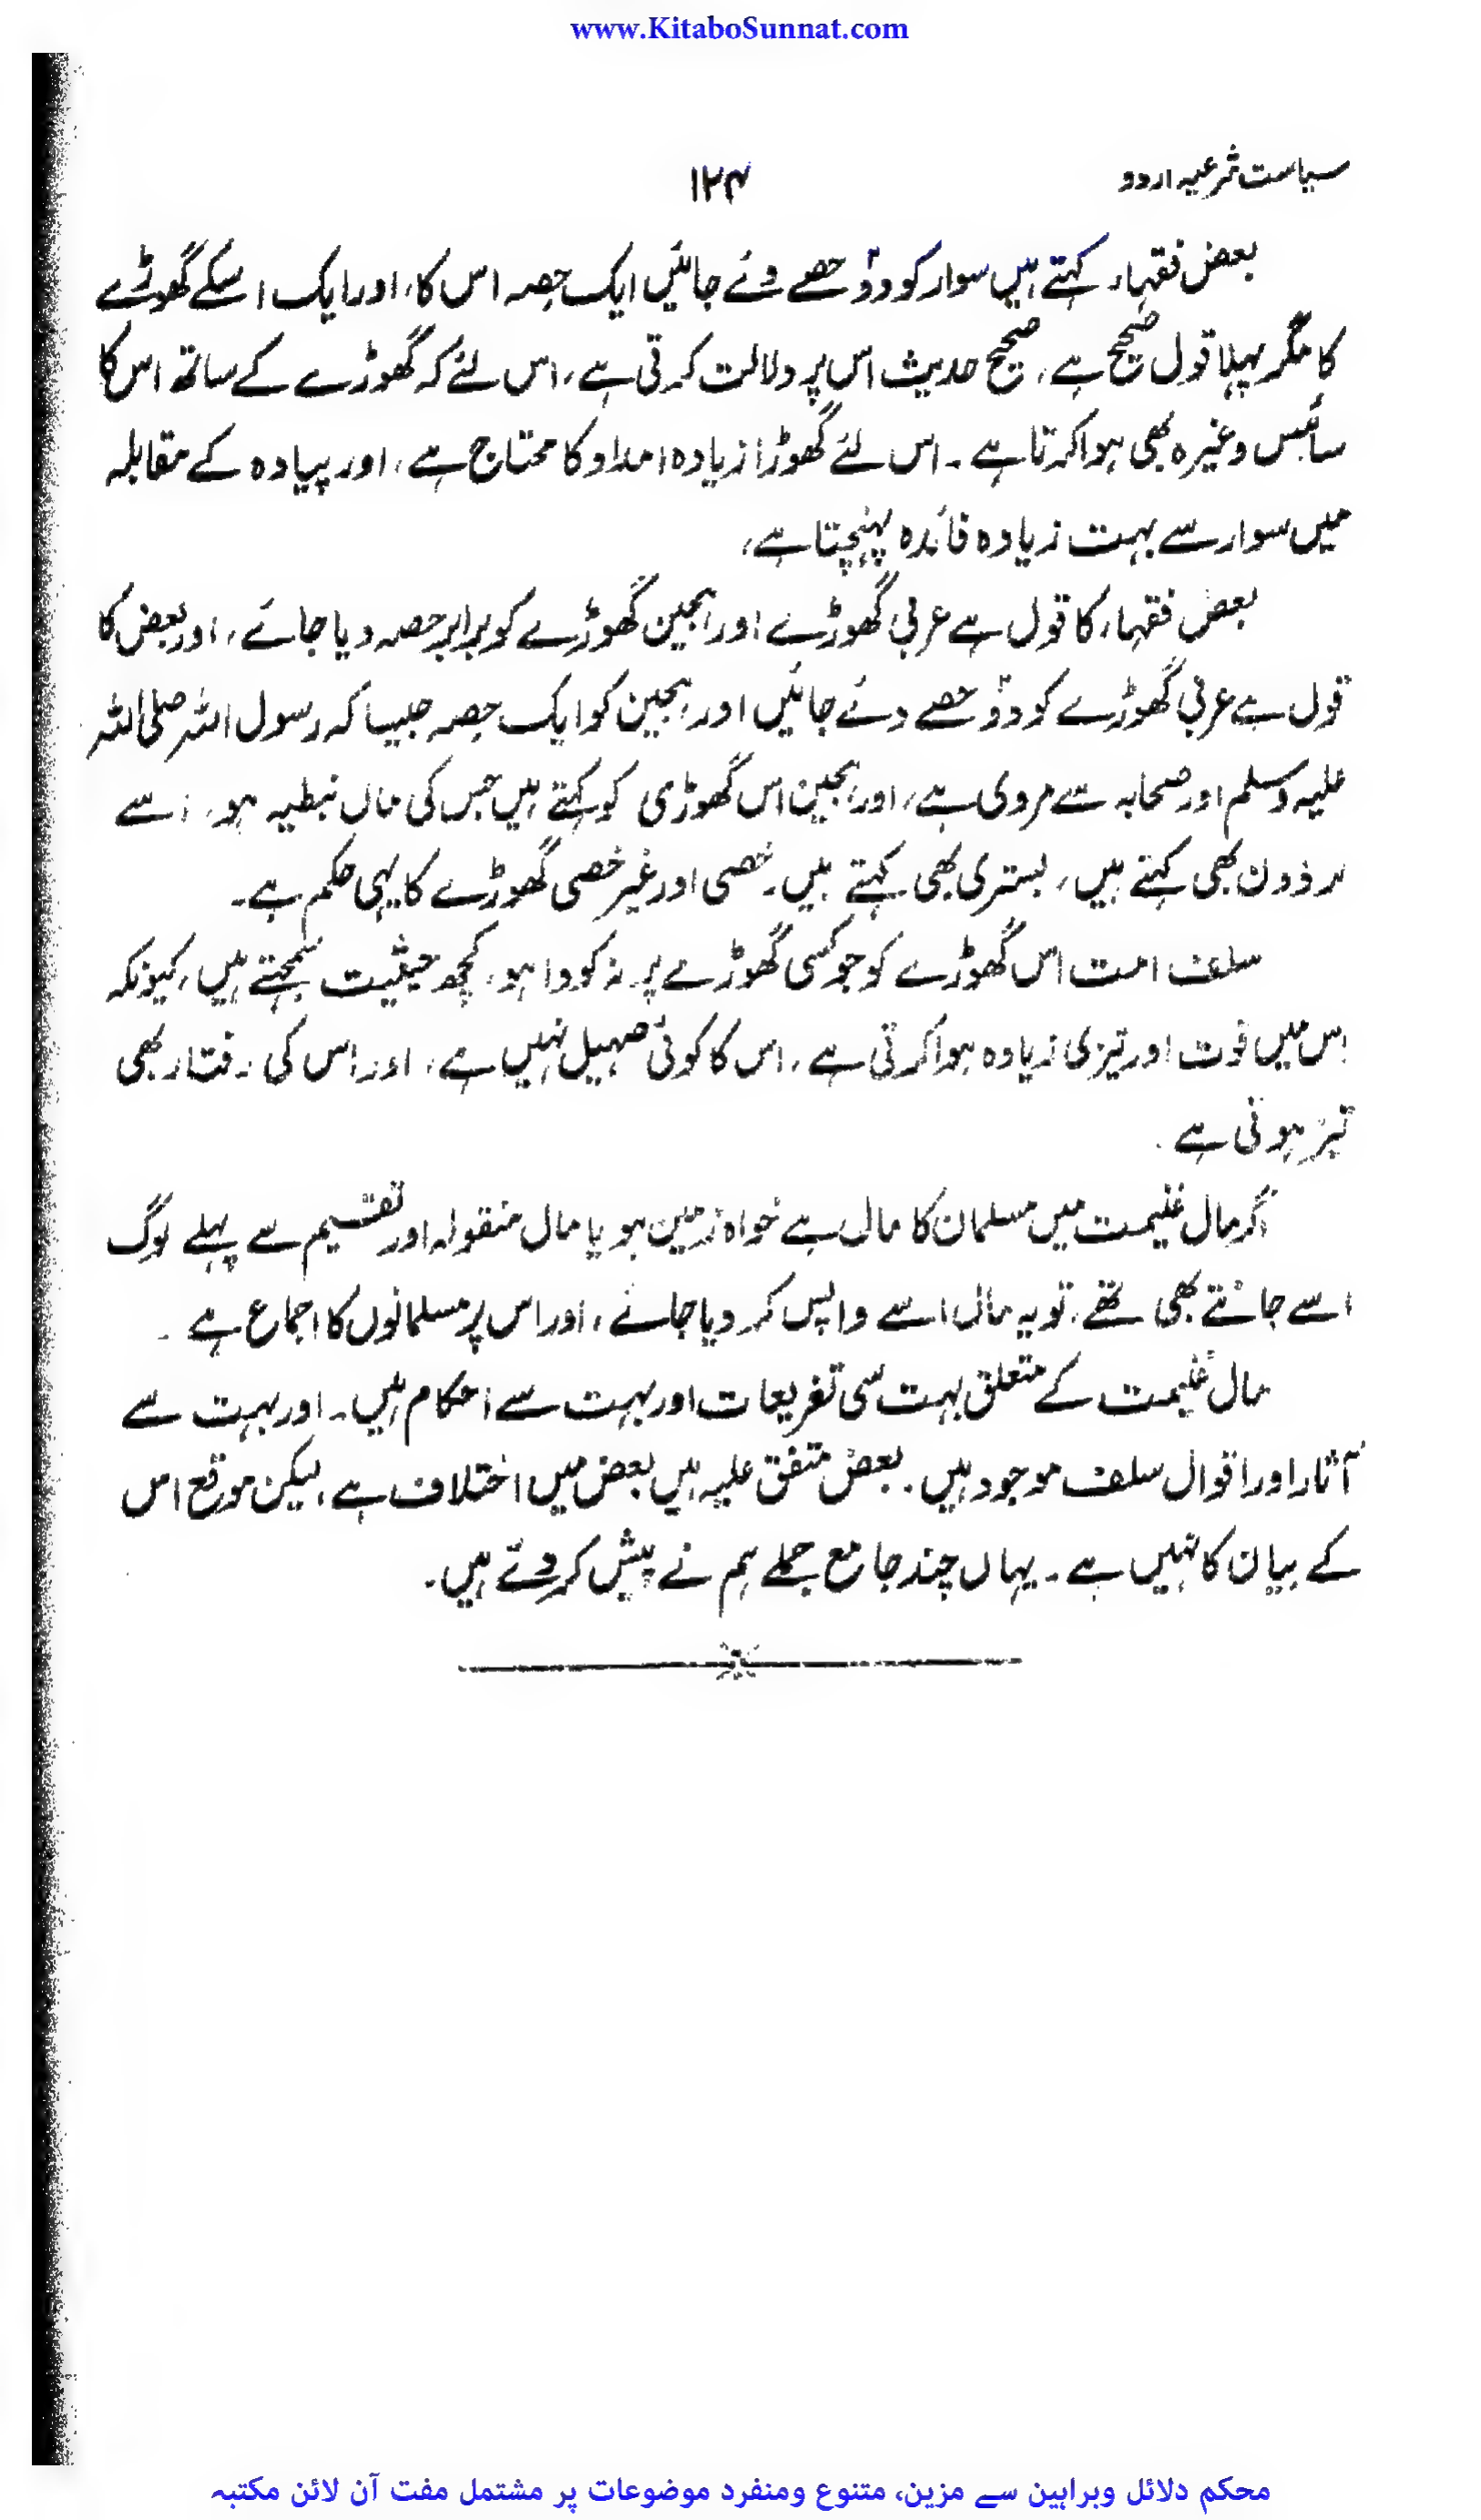 www.KitaboSunnat.com
سیاست شرعیہ اردو
۱۲۴
بعض فقہاء کہتے ہیں سوار کو دو حصے دئے جائیں ایک حصہ اس کا، اور ایک اسکے گھوڑے
کا مگر پہلا قول صحیح ہے، صحیح حدیث اس پر دلالت کرتی ہے، اس لئے کہ گھوڑے کے ساتھ اس کا
سائیس وغیرہ بھی ہوا کرتا ہے۔ اس لئے گھوڑا زیادہ امداد کا محتاج ہے، اور پیادہ کے مقابلہ
میں سوار سے بہت زیادہ فائدہ پہنچتا ہے،
بعض فقہاء کا قول ہے عربی گھوڑے اور ہجین گھوڑے کو برابر حصہ دیا جائے، اور بعض کا
قول ہے عربی گھوڑے کو دو حصے دئے جائیں اور ہجین کو ایک حصہ جیسا کہ رسول اللہ صلی اللہ
علیہ وسلم اور صحابہ سے مروی ہے، اور ہجین اس گھوڑی کو کہتے ہیں جس کی ماں نبطیہ ہو، اسے
برذون بھی کہتے ہیں، بستری بھی کہتے ہیں۔ خصی اور غیر خصی گھوڑے کا یہی حکم ہے۔
سلف امت اس گھوڑے کو جو کسی گھوڑے پر نہ کودا ہو، کچھ حیثیت سمجھتے ہیں، کیونکہ
اس میں قوت اور تیزی زیادہ ہوا کرتی ہے، اس کا کوئی صہیل نہیں ہے، اور اس کی رفتار بھی
تیز ہوتی ہے۔
اگر مال غنیمت میں مسلمان کا مال ہے خواہ زمین ہو یا مال منقولہ اور تقسیم سے پہلے لوگ
اسے جانتے بھی تھے، تو یہ مال اسے واپس کر دیا جائے، اور اس پر مسلمانوں کا اجماع ہے۔
مال غنیمت کے متعلق بہت سی تفریعات اور بہت سے احکام ہیں۔ اور بہت سے
آثار اور اقوال سلف موجود ہیں۔ بعض متفق علیہ ہیں بعض میں اختلاف ہے، لیکن موقع اس
کے بیان کا نہیں ہے۔ یہاں چند جامع جملے ہم نے پیش کر دئے ہیں۔
محکم دلائل وبراہین سے مزین، متنوع ومنفرد موضوعات پر مشتمل مفت آن لائن مکتبہ